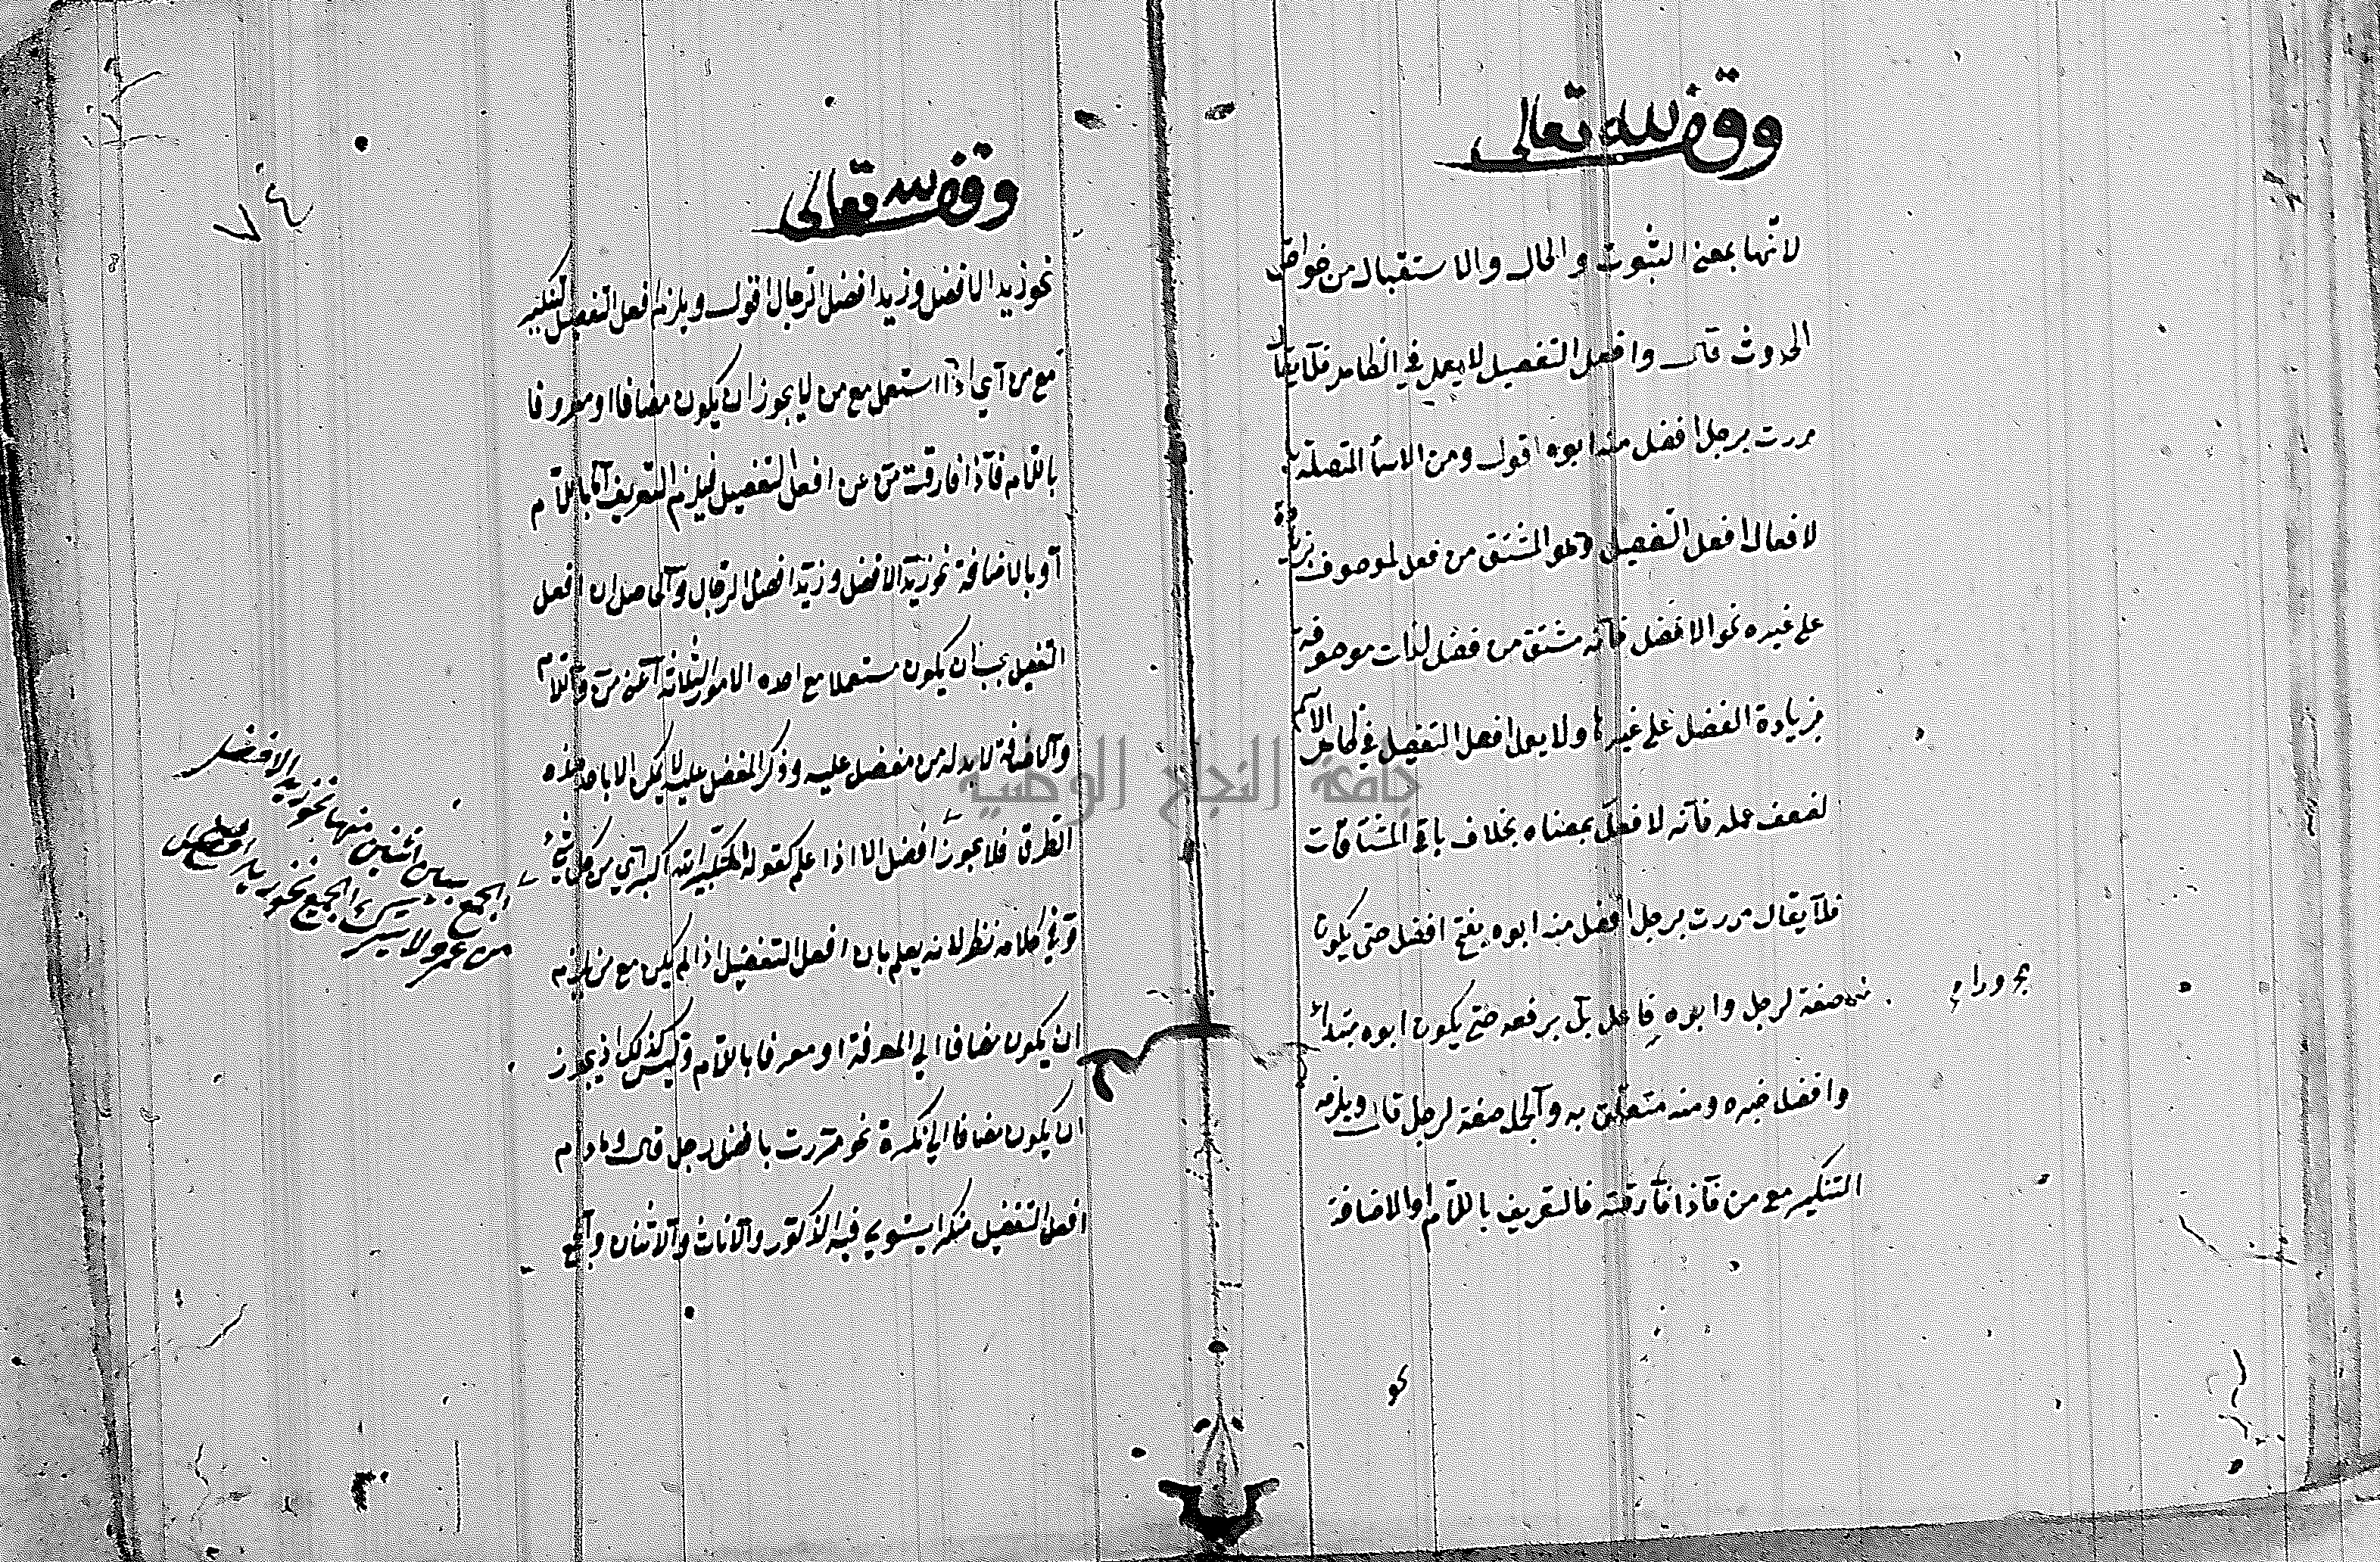 وقف لله تعالى
لانها بمعنى الثبوت والحال والاستقبال من خواص
الحدوث قال وافعل التفضيل لا يعمل في الظاهر فلا يقال
مررت برجل افضل منه ابوه اقول ومن الاسماء المتصلة
لافعال افعل التفضيل وهو المشتق من فعل لموصوف بزيادة
على غيره نحو الافضل فانه مشتق من فضل لذات موصوفة
بزيادة الفضل على غيرها ولا يعمل افعل التفضيل في الاسم الظاهر
لضعف عمله فانه لا فعل بمعناه بخلاف باقي المشتقات
فلا يقال مررت برجل افضل منه ابوه بفتح افضل حتى يكون
صفة لرجل وابوه فاعل بل برفعه حتى يكون ابوه مبتدا
وافضل خبره ومنه متعلق به والجملة صفة لرجل قال ويلزمه
التنكير مع من فاذا فارقته فالتعريف باللام او الاضافة
نحو
وقف لله تعالى
٧٤
نحو زيد الافضل وزيد افضل الرجال اقول ويلزم افعل التفضيل التنكير
مع من اي اذا استعمل مع من لا يجوز ان يكون مضافا او معروفا
باللام فاذا فارقت من عن افعل التفضيل فيلزم التعريف اما باللام
او بالاضافة نحو زيد الافضل وزيد افضل الرجال والحاصل ان افعل
التفضيل يجب ان يكون مستعملا مع احده الامور الثلاثة اعني من واللام
والاضافة لا بد له من مفضل عليه وذكر المفضل عليه لا يمكن الا باحد هذه
الطرق فلا يجوز افضل الا اذا علم كقوله المكبر الله اكبر اي من كل شيء
وفي كلامه نظر لانه يعلم بان افعل التفضيل اذا لم يكن مع من يلزم
ان يكون مضافا الى المعرفة او معرفا باللام وليس كذلك اذ يجوز
ان يكون مضافا الى نكرة نحو مررت بافضل رجل قال وما دام
افعل التفضيل منكرا يستوي فيه الذكور والاناث والاثنان والجمع
الجمع بين اثنين منها نحو زيد الافضل
من عمرو ولا